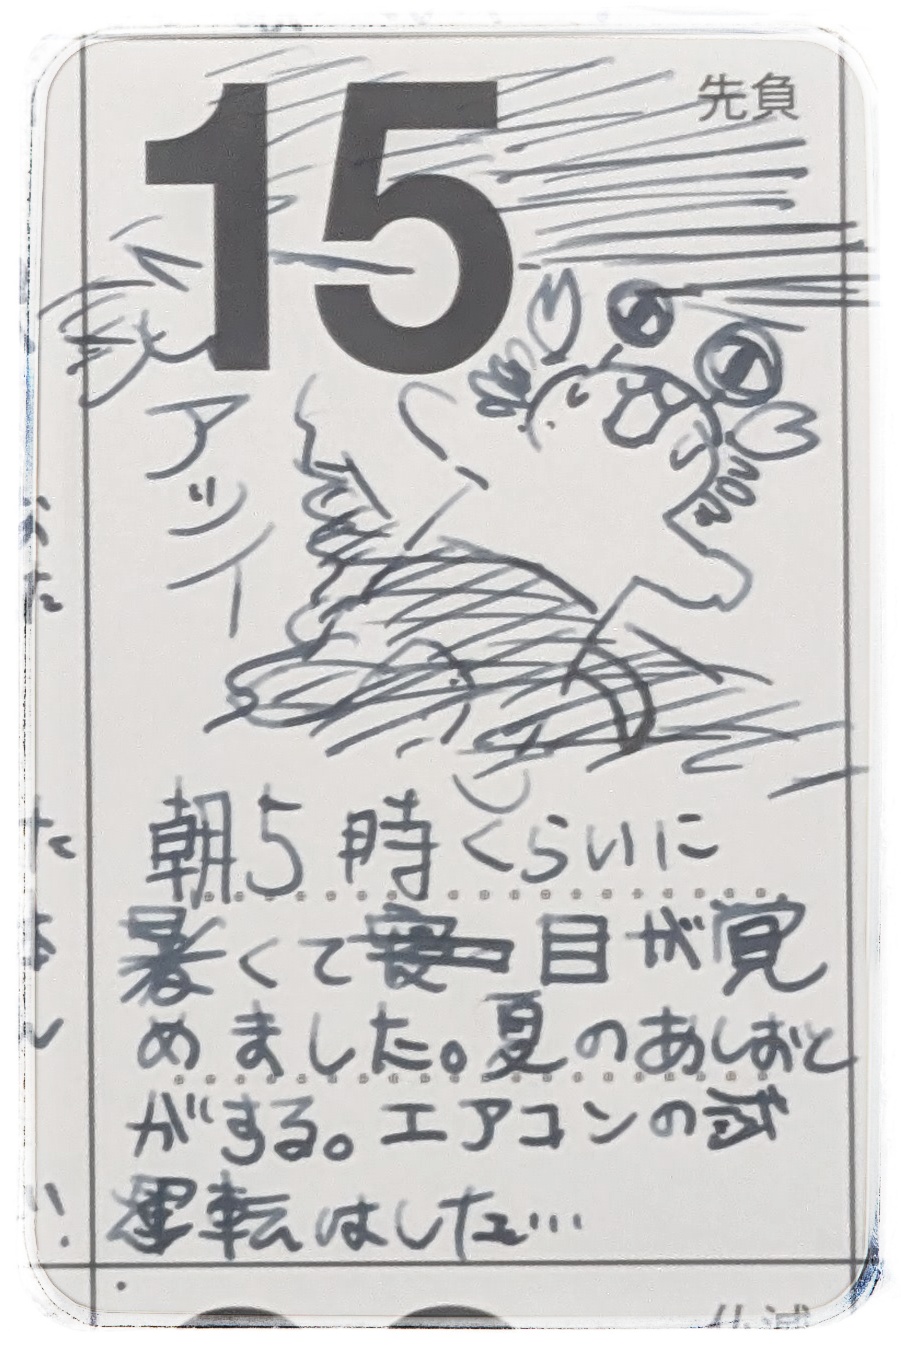 15
先負
アツイ
朝5時くらいに
暑くて目が覚
めました。夏のあしおと
がする。エアコンの試
運転はした…
仏滅